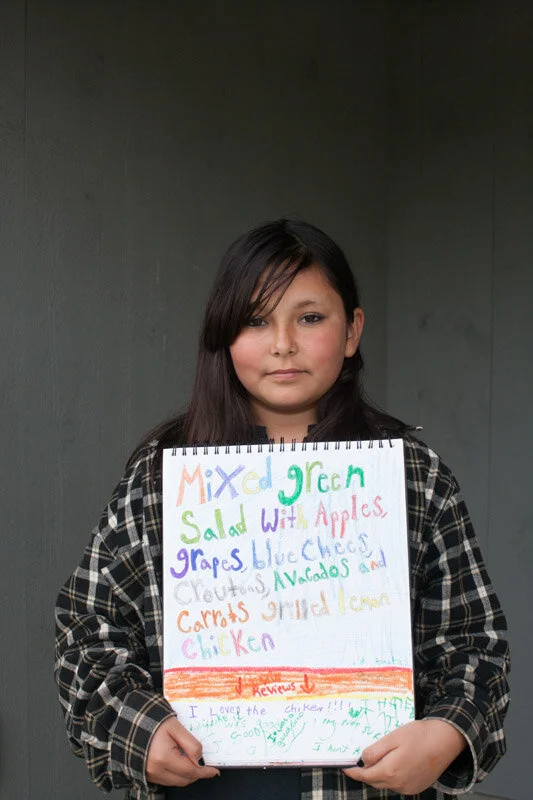 Mixed green
Salad with Apples,
grapes, blue Chees,
Croutons, Avacados and
Carrots grilled lemon
chicken
Reviews
I Loved the chicken!!!!
good